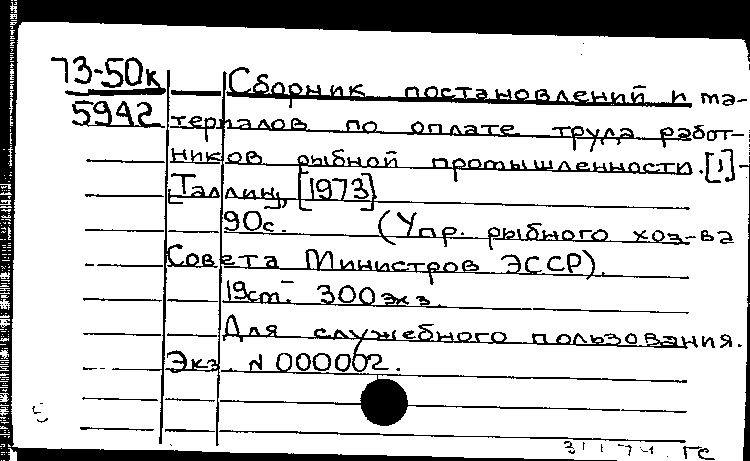 73-50к Сборник постановлений и ма-
5942 териалов по оплате труда работ-
ников рыбной промышленности. [1]-
[Таллин], [1973].
90с. (Упр. рыбного хоз-ва
Совета Министров ЭССР).
19см. 300экз.
Для служебного пользования.
Экз. N 000002.